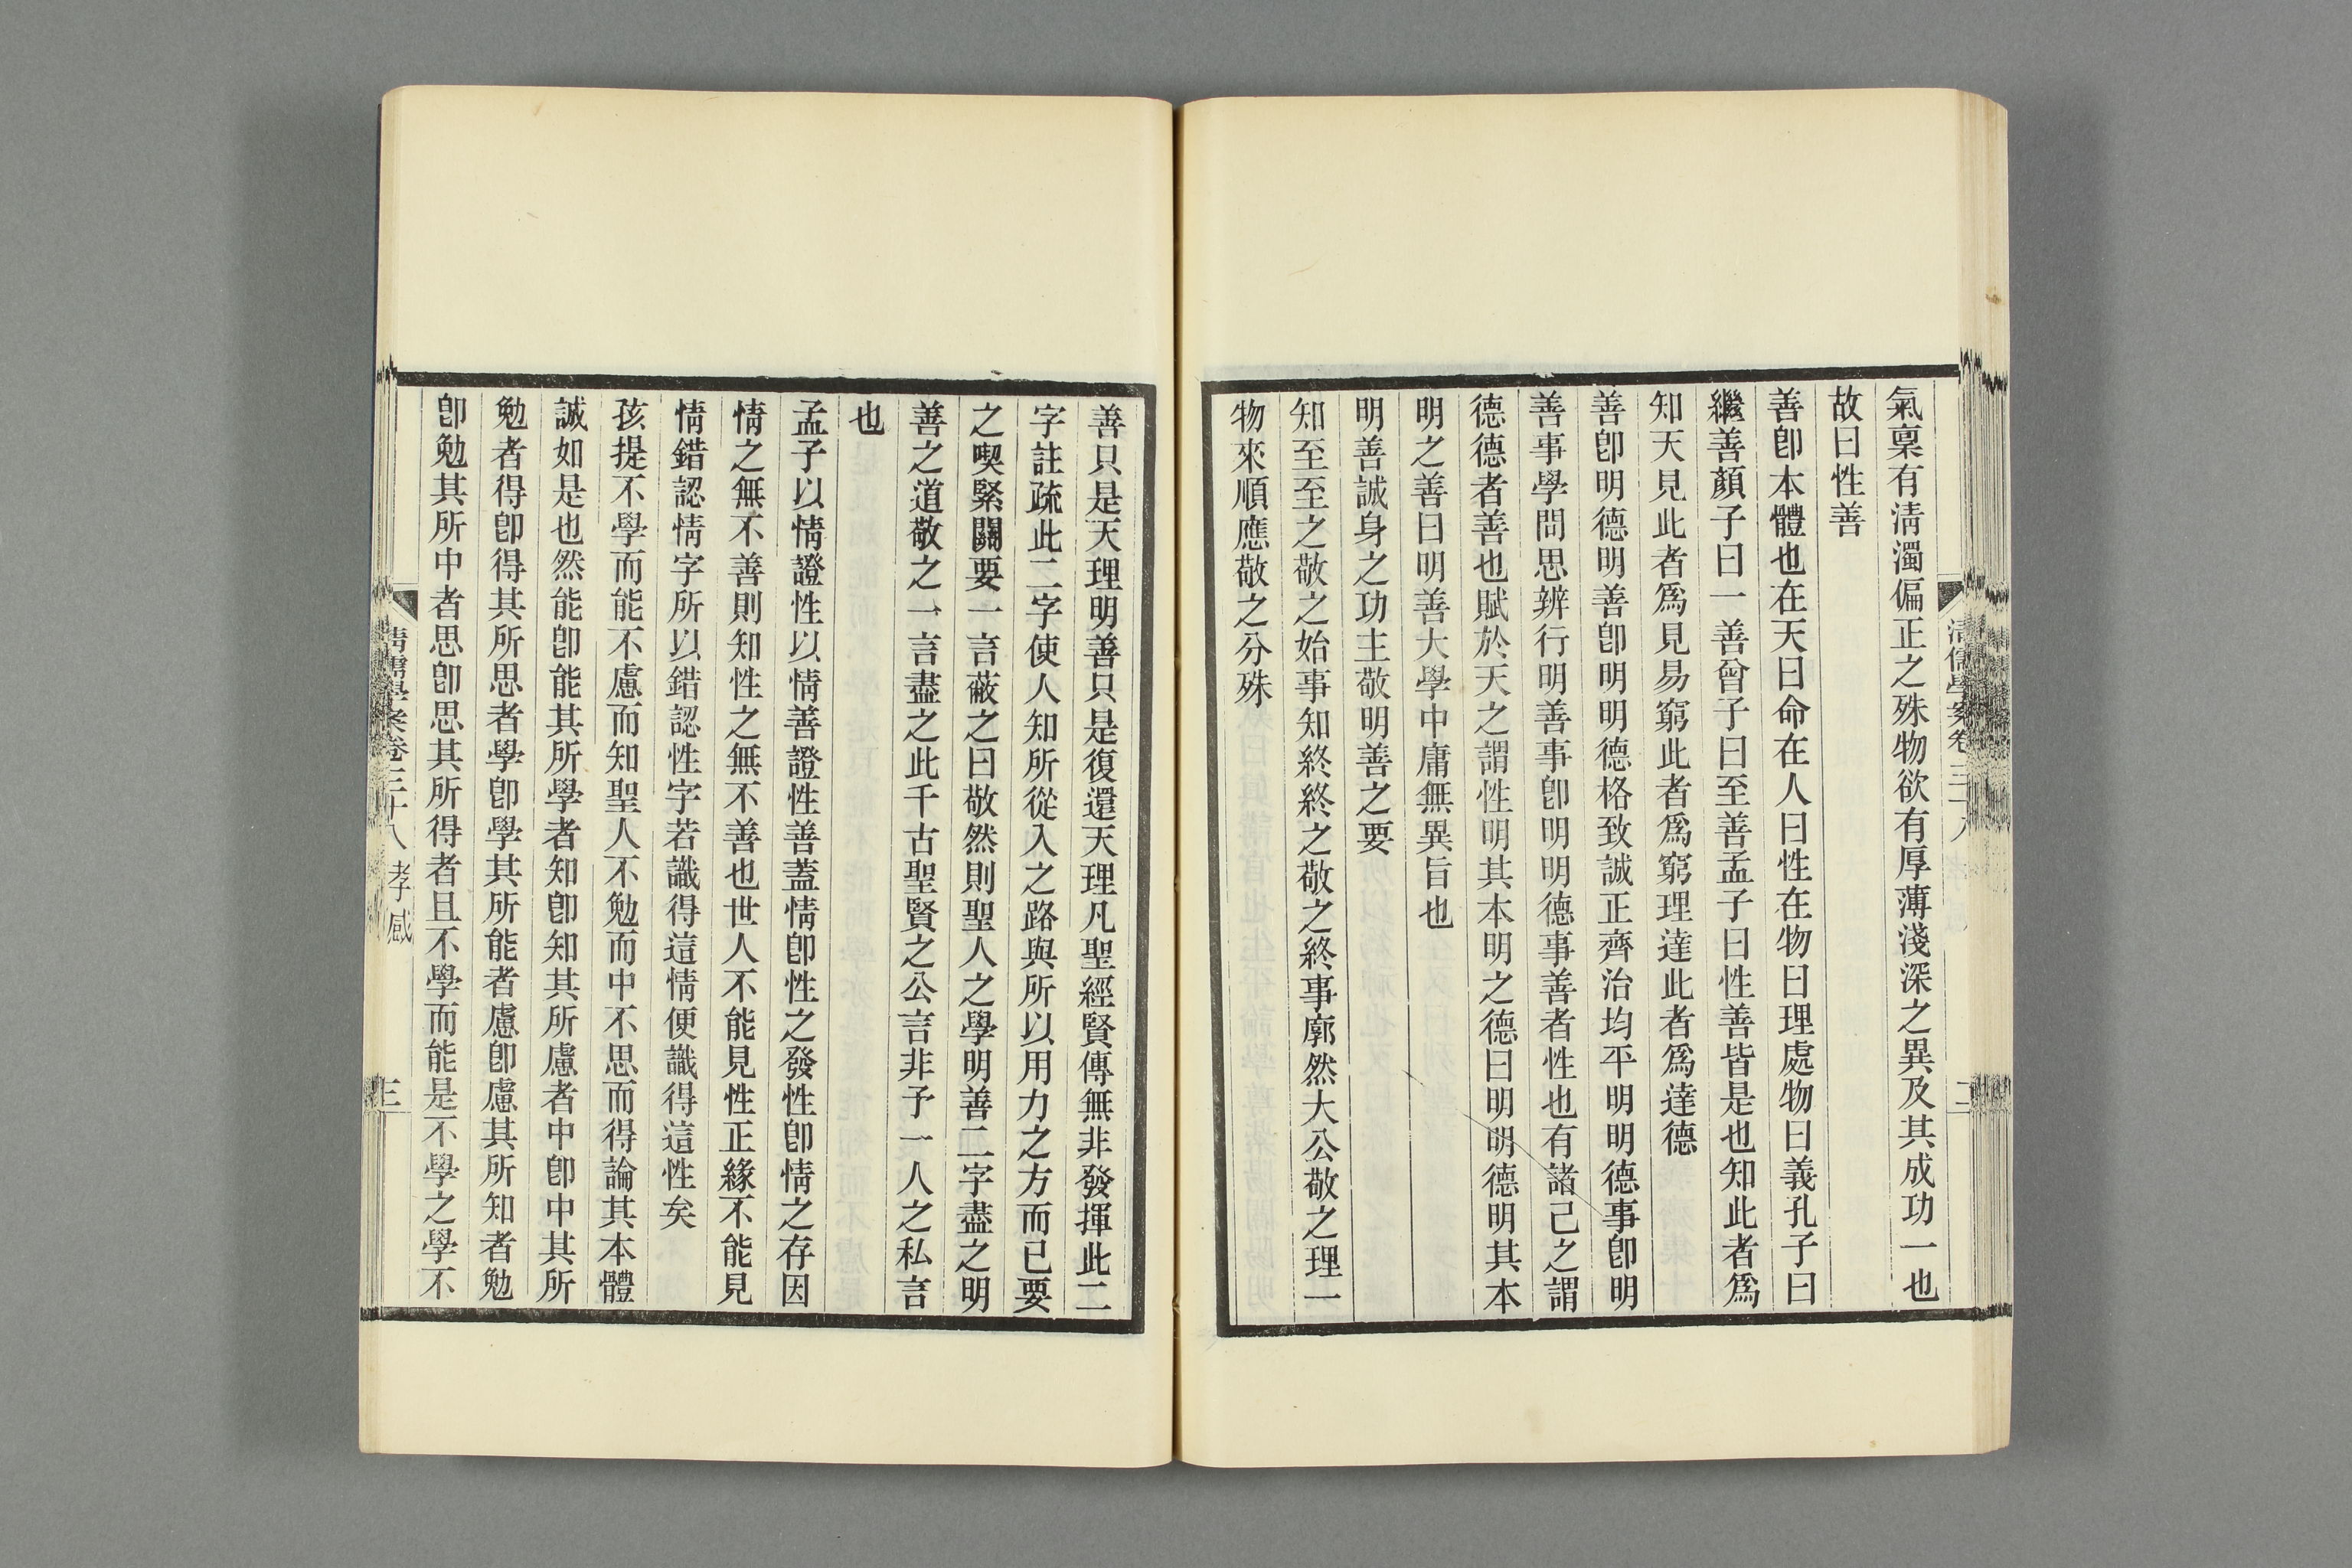 氣稟有淸濁偏正之殊物欲有厚薄淺深之異及其成功一也
故曰性善
善卽本體也在天曰命在人曰性在物曰理處物曰義孔子曰
繼善顏子曰一善曾子曰至善孟子曰性善皆是也知此者爲
知天見此者爲見易窮此者爲窮理達此者爲達德
善卽明德明善卽明明德格致誠正齊治均平明明德事卽明
善事學問思辨行明善事卽明明德事善者性也有諸己之謂
德德者善也賦於天之謂性明其本明之德曰明明德明其本
明之善曰明善大學中庸無異旨也
明善誠身之功主敬明善之要
知至至之敬之始事知終終之敬之終事廓然大公敬之理一
物來順應敬之分殊
善只是天理明善只是復還天理凡聖經賢傳無非發揮此二
字註疏此二字使人知所從入之路與所以用力之方而已要
之喫緊關要一言蔽之曰敬然則聖人之學明善二字盡之明
善之道敬之一言盡之此千古聖賢之公言非予一人之私言
也
孟子以情證性以情善證性善蓋情卽性之發性卽情之存因
情之無不善則知性之無不善也世人不能見性正緣不能見
情錯認情字所以錯認性字若識得這情便識得這性矣
孩提不學而能不慮而知聖人不勉而中不思而得論其本體
誠如是也然能卽能其所學者知卽知其所慮者中卽中其所
勉者得卽得其所思者學卽學其所能者慮卽慮其所知者勉
卽勉其所中者思卽思其所得者且不學而能是不學之學不
清儒學案卷三十八 孝感
三
清儒學案卷三十八
二